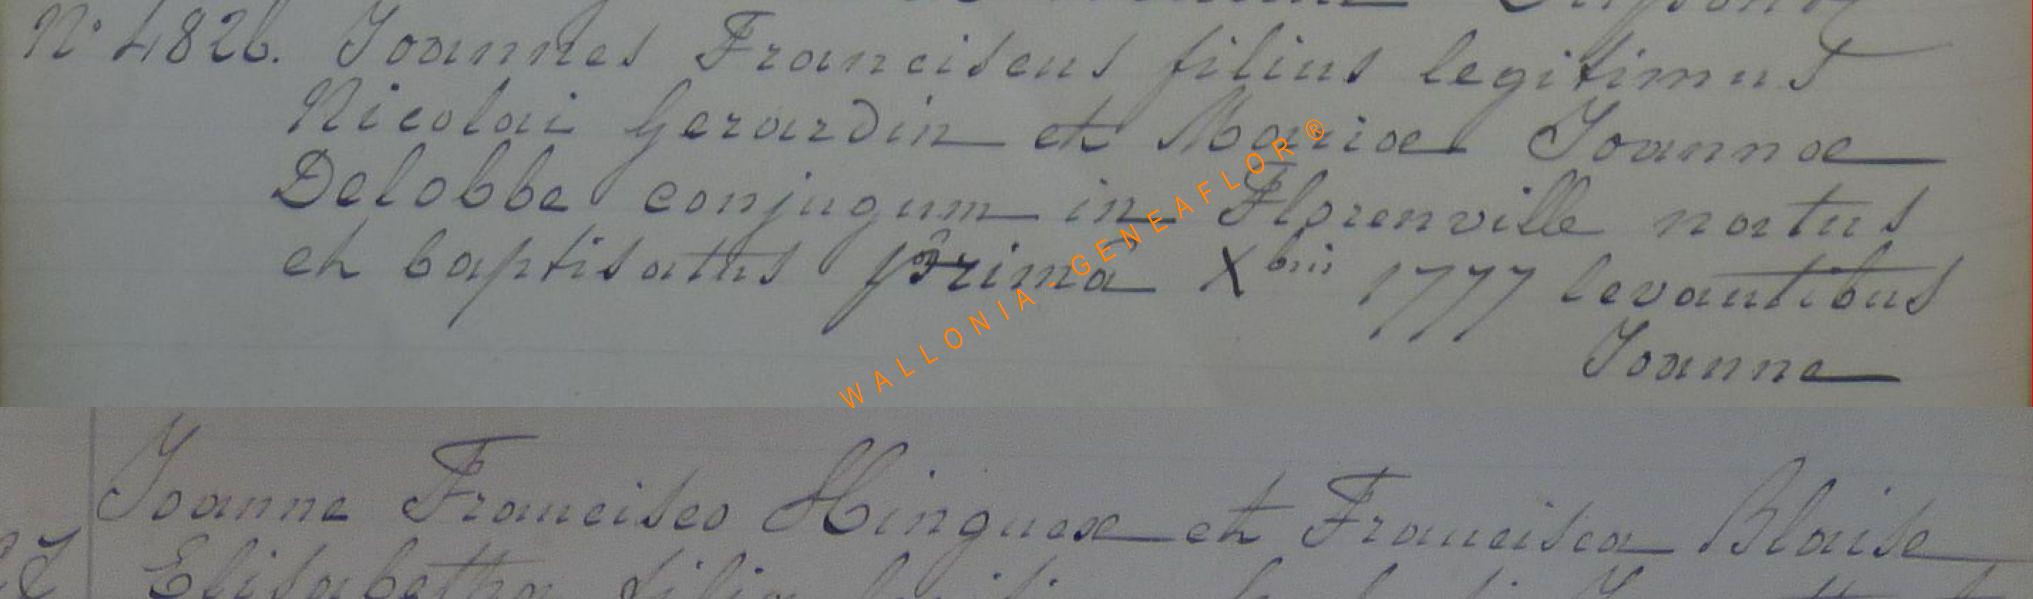 N° 4826. Joannes Franciscus filius legitimus
Nicolai Gerardin et Mariae Joannae
Delobbe conjugum in Florenville natus
et baptisatus prima Xbris 1777 levantibus
Joanne
WALLONIA - GENEAFLOR ®
Joanne Francisco Hinguex et Francisca Blaise
Elisabetha filia